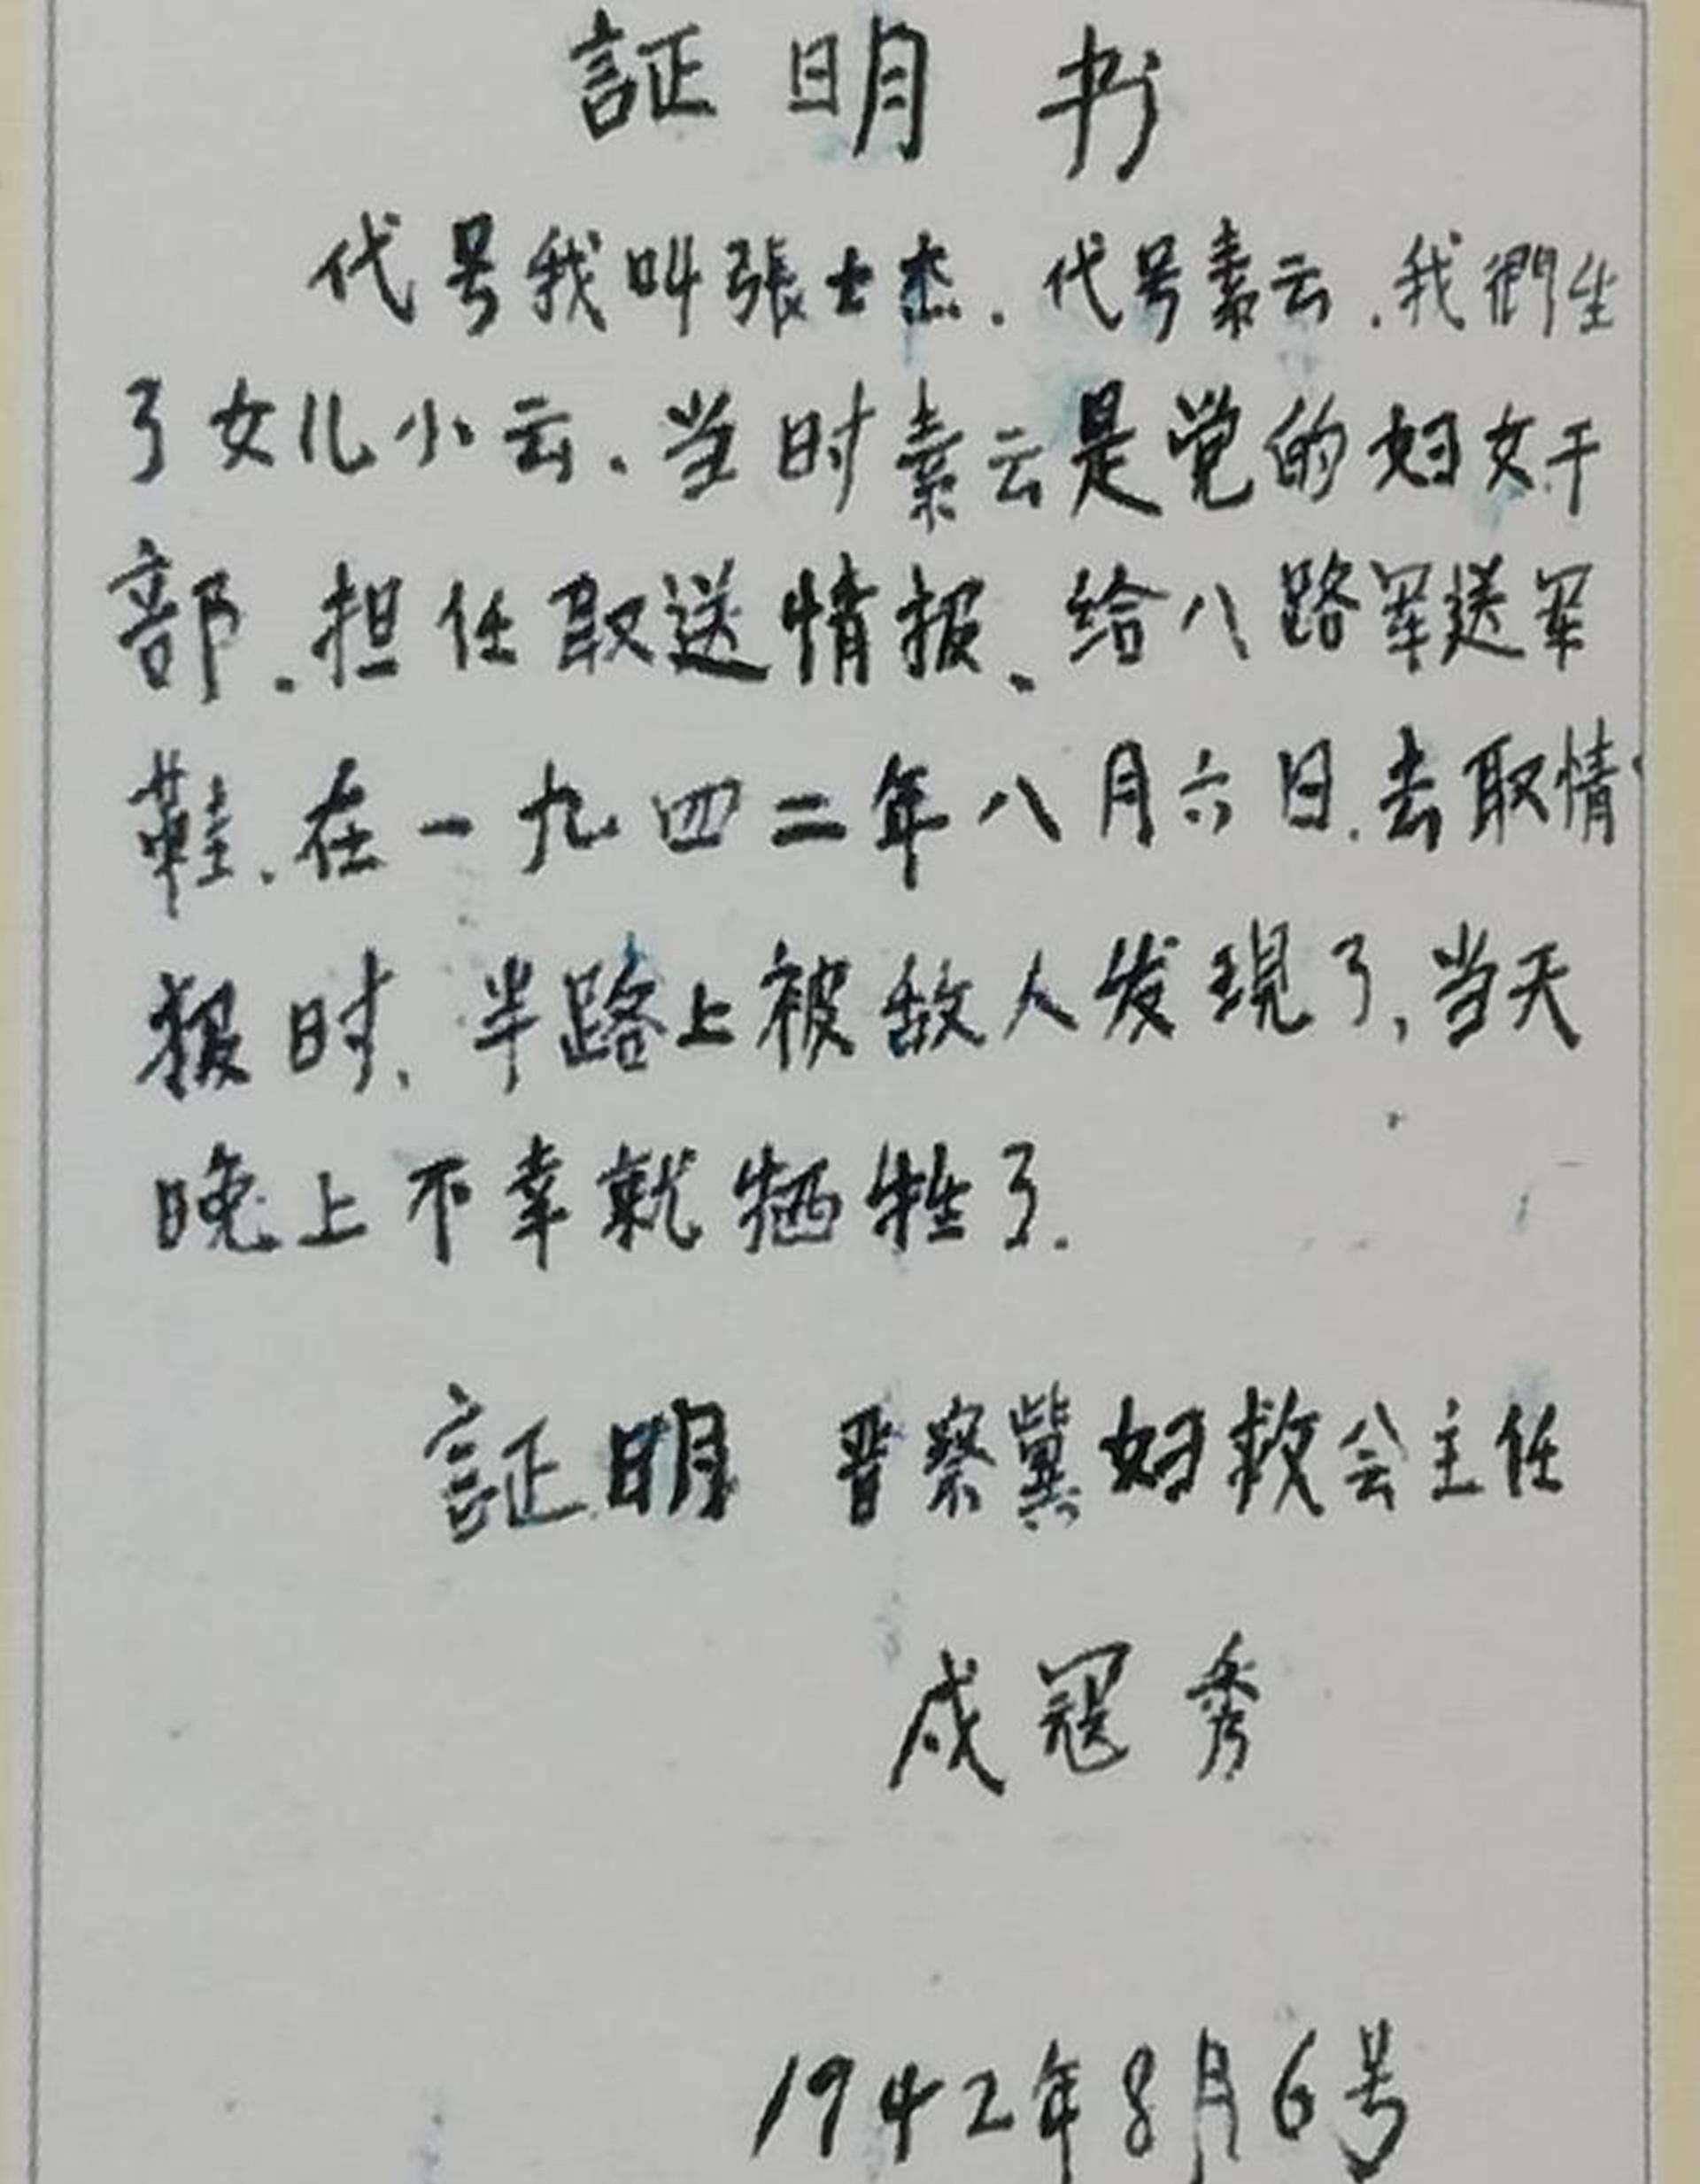 証明书
代号我叫張士杰.代号素云.我們生
了女儿小云.当时素云是党的妇女干
部.担任取送情报、给八路军送军
鞋.在一九四二年八月六日.去取情
报时、半路上被敌人发現了,当天
晚上不幸就牺牲了.
証明 晋察冀妇救会主任
戎冠秀
1942年8月6号